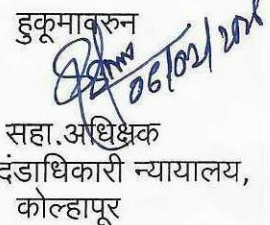 हुकूमावरुन
06/02/2026
सहा.अधिक्षक
दंडाधिकारी न्यायालय,
कोल्हापूर